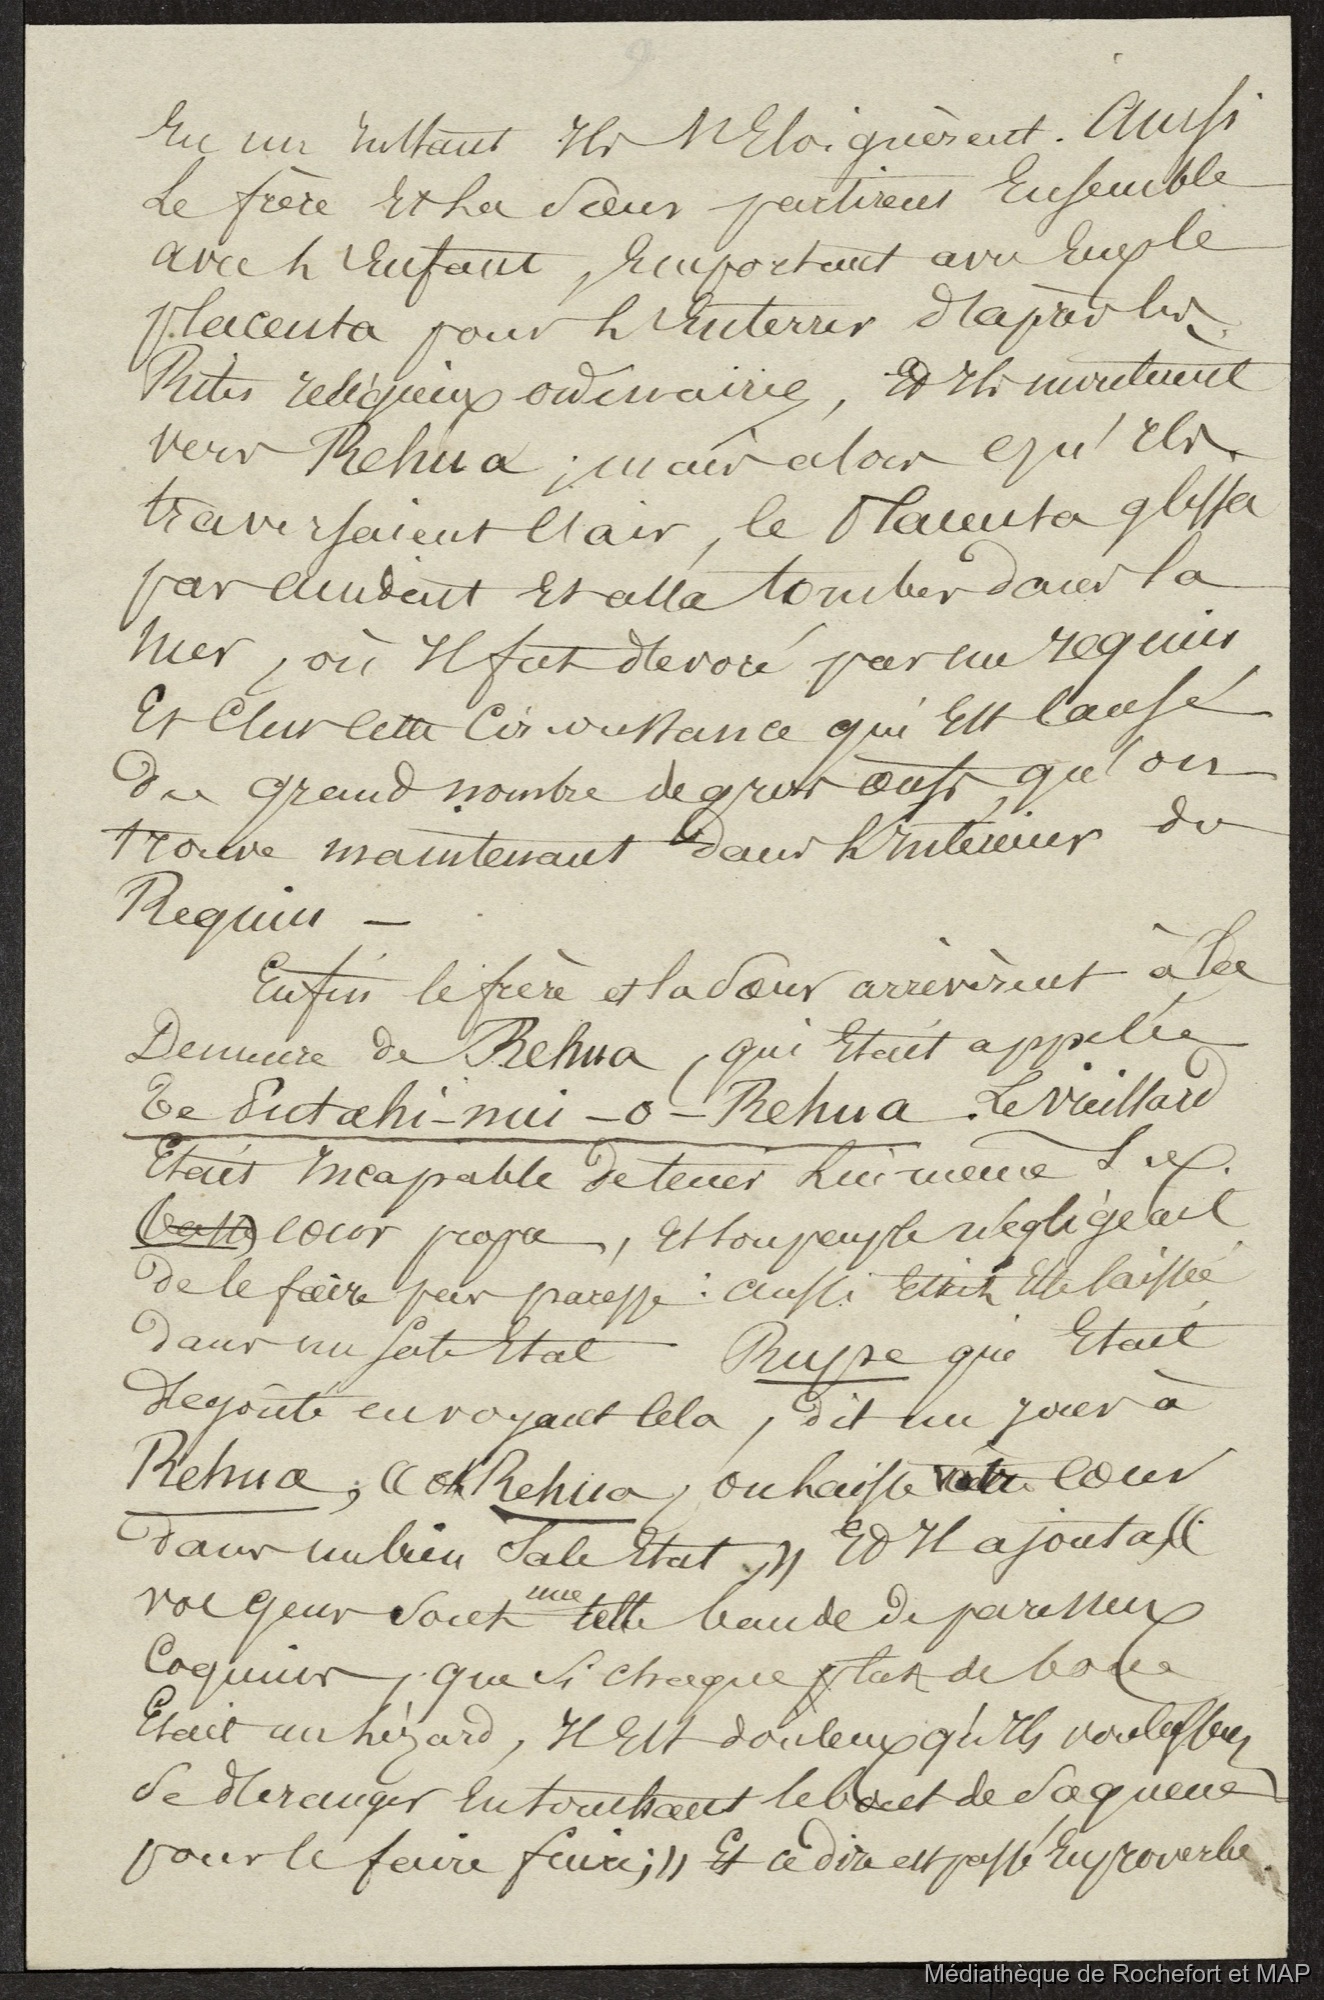 9
En un Instant Ils s'Eloignèrent. Aussi
Le frère Et La Sœur partirent Ensemble
avec L'Enfant, Emportant avec Eux le
placenta pour L'Enterrer d'après les
Rites religieux ordinaires, Et Ils montèrent
vers Rehua ; mais alors qu'Ils
traversaient l'air, le Placenta glissa
par accident Et alla tomber dans la
Mer, où Il fut dévoré par un requin
Et C'est cette Circonstance qui Est Cause
du grand nombre de gros œufs qu'on
trouve maintenant dans L'Intérieur du
Requin —
Enfin le frère et la Sœur arrivèrent à La
Demeure de Rehua, qui Etait appelée
Te Putahi-nui-o-Rehua. Le vieillard
Etait Incapable de tenir Lui même Sa
cour propre, Et son peuple négligeait
de le faire par paresse : aussi Etait Elle laissée
dans un sale Etat — Rupe qui Etait
dégoûté en voyant Cela, dit un jour à
Rehua, « oh Rehua, on laisse votre cour
dans un bien Sale Etat, » Et Il ajouta, «
vos gens sont une telle bande de paresseux
Coquins, que Si chaque tas de boue
Etait un lézard, Il Est douteux qu'Ils voulussent
Se déranger En touchant le bout de Sa queue
pour le faire fuir ; » Et ce dire est passé En proverbe.
Médiathèque de Rochefort et MAP